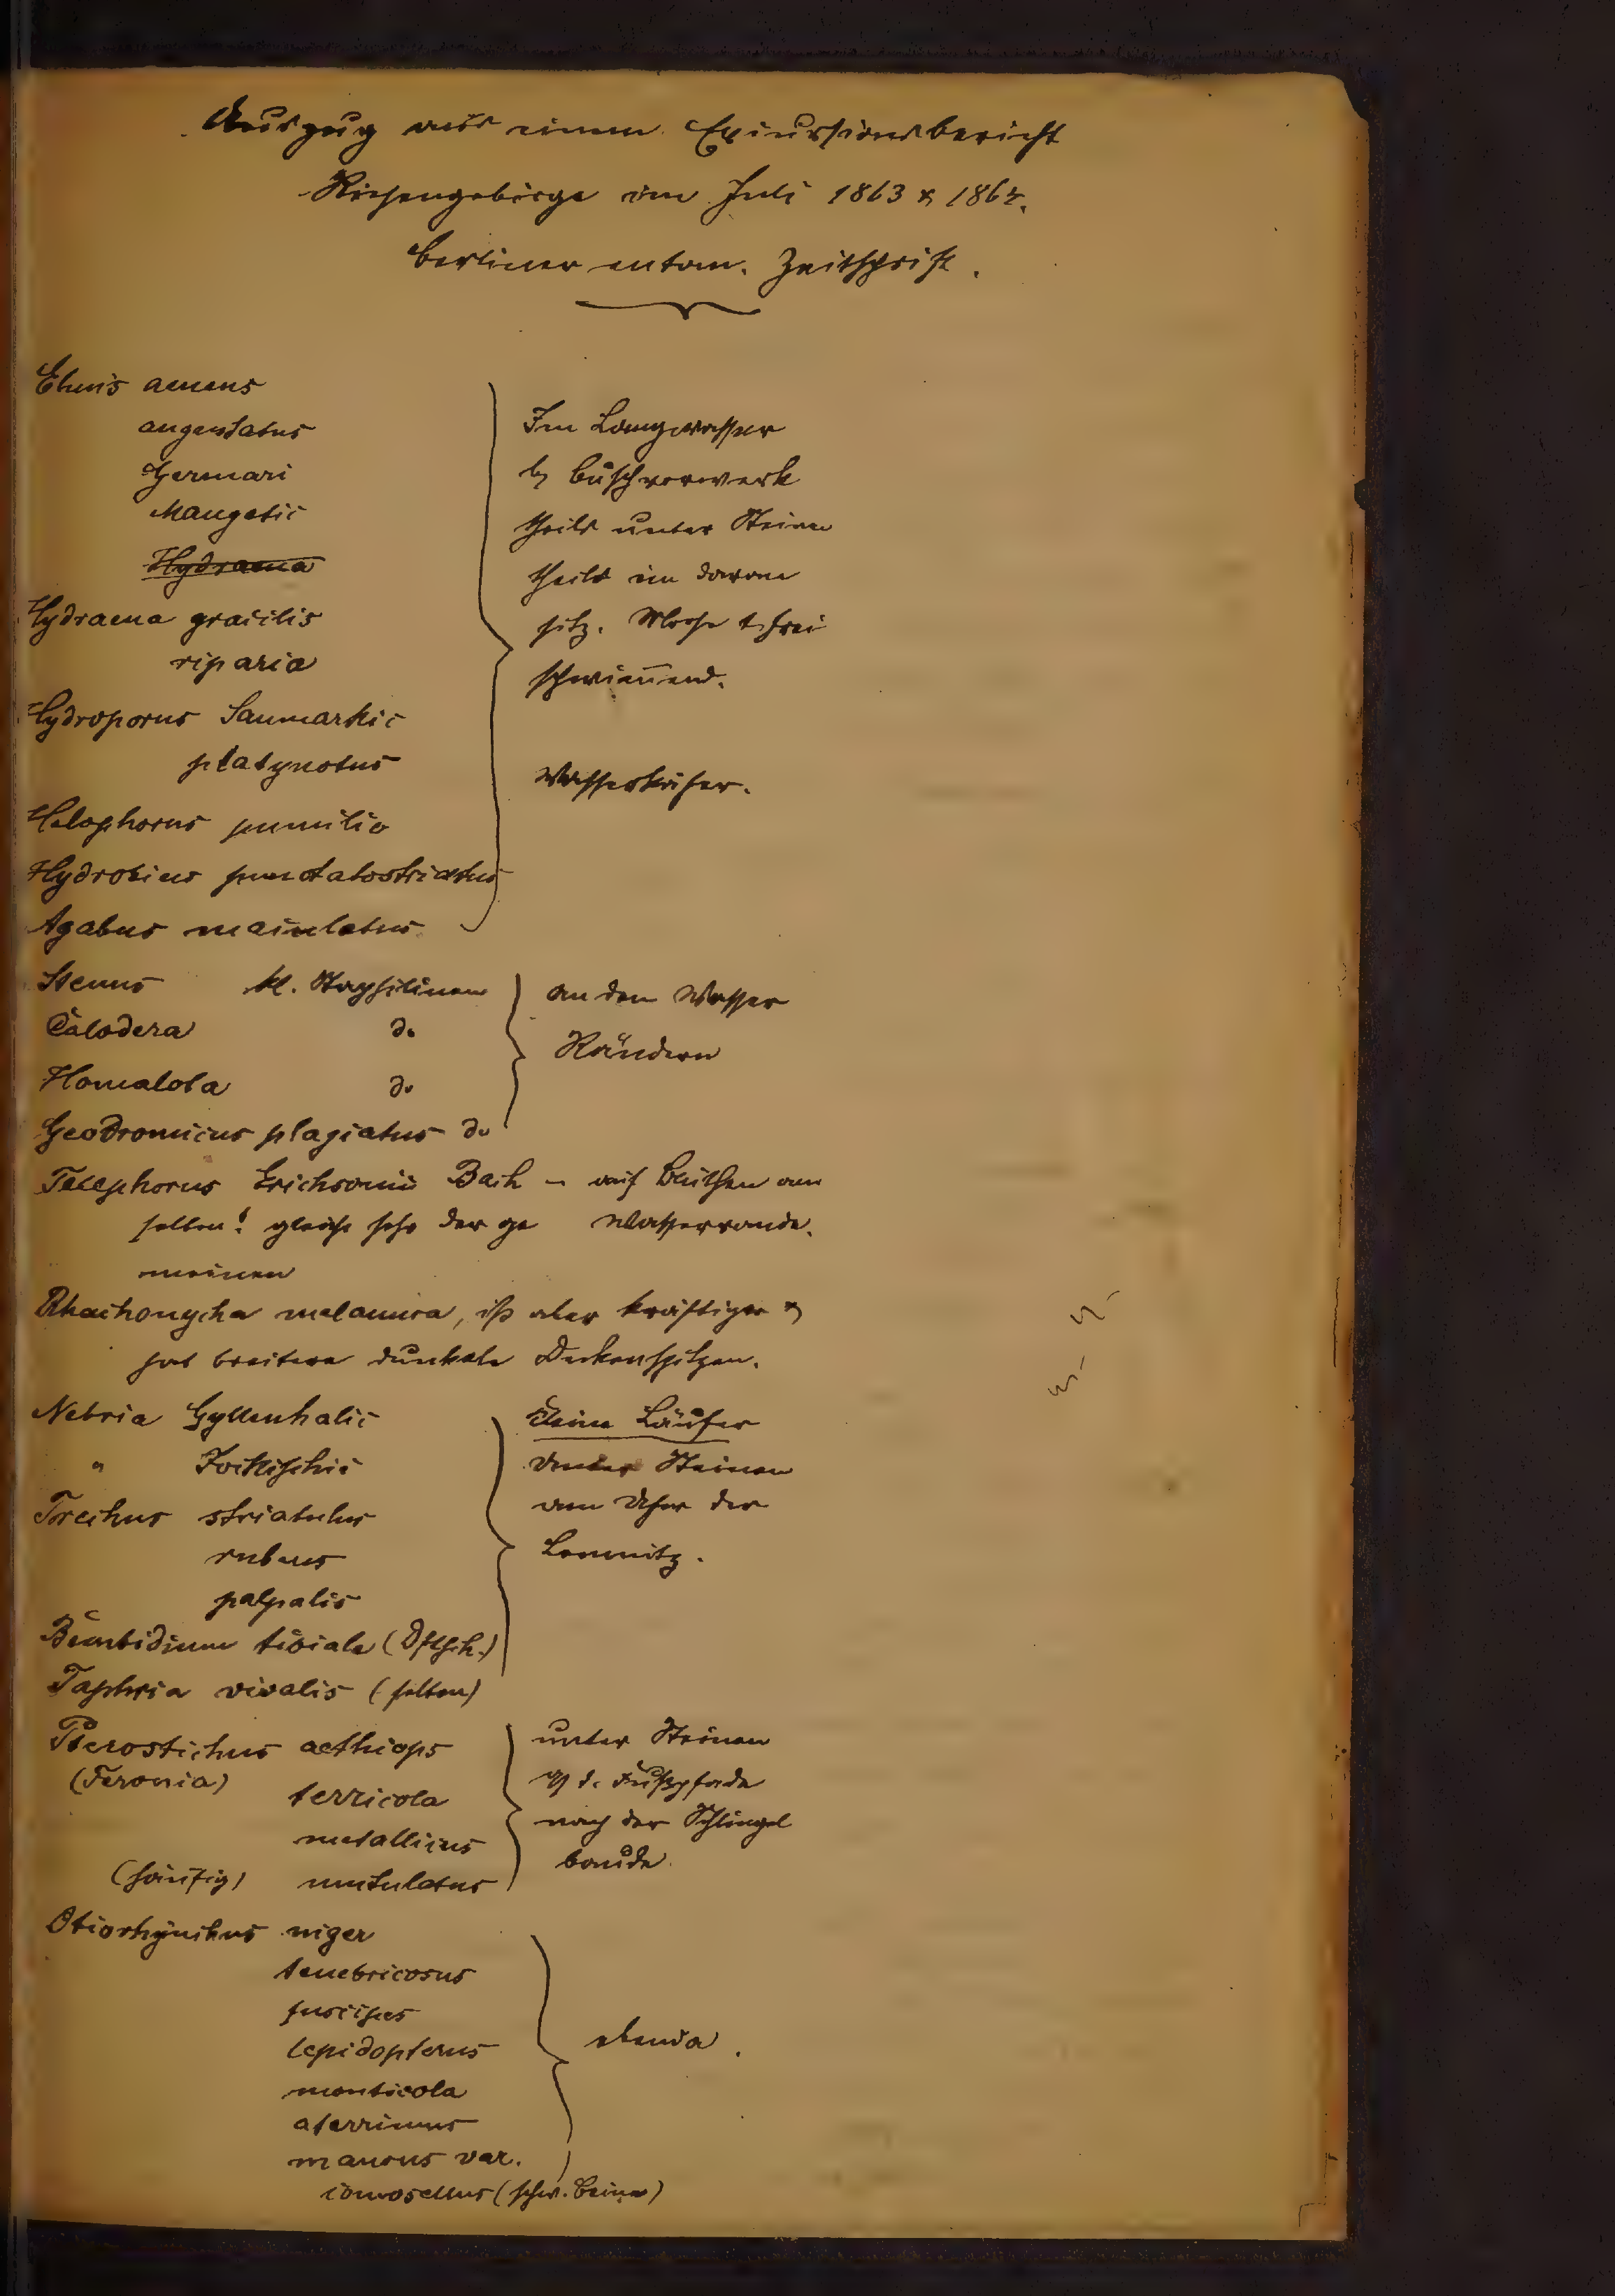 Auszug aus einem Excursionsbericht
Riesengebirge im Juli 1863 & 1864.
Berliner entom. Zeitschrift.
Elmis aeneus
angustatus
Germari
Maugetii
Hydraena
Hydraena gracilis
riparia
Hydroporus Sanmarkii
platynotus
Helophorus pumilio
Hydrobius punctatostriatus
Agabus maculatus
Im Langwasser
b/ Buschvorwerk
theils unter Steinen
theils im daran
sitz. Moose & frei
schwim̄end.
Wasserkäfer.
Stenus kl. Staphilinen
Calodera do
Homalota do
Geodromicus plagiatus do
an den Wasser
Rändern
Telephorus Erichsonii Bach – auf Blüthen am
selten! gleicht sehr der ge Wasserrande.
meinen
Rhachonycha melanura, ist aber kräftiger &
hat breitere dunkele Deckenspitzen.
Nebria Gyllenhalii
" Jockischii
Trechus striatulus
rubens
palpalis
Bembidium tibiale (Dftsch.)
Taphria vivalis (selten)
kleine Läufer
Unter Steinen
am Ufer der
Lomnitz.
Pterostichus aethiops
(Feronia) terricola
metallicus
(häufig) mutulatus
unter Steinen
a/ d. Fußpfade
nach der Schlingel
baude.
Otiorhynchus niger
tenebricosus
fuscipes
lepidopterus
monticola
aterrimus
maurus var.
comosellus (schw. Beine)
ebenda.